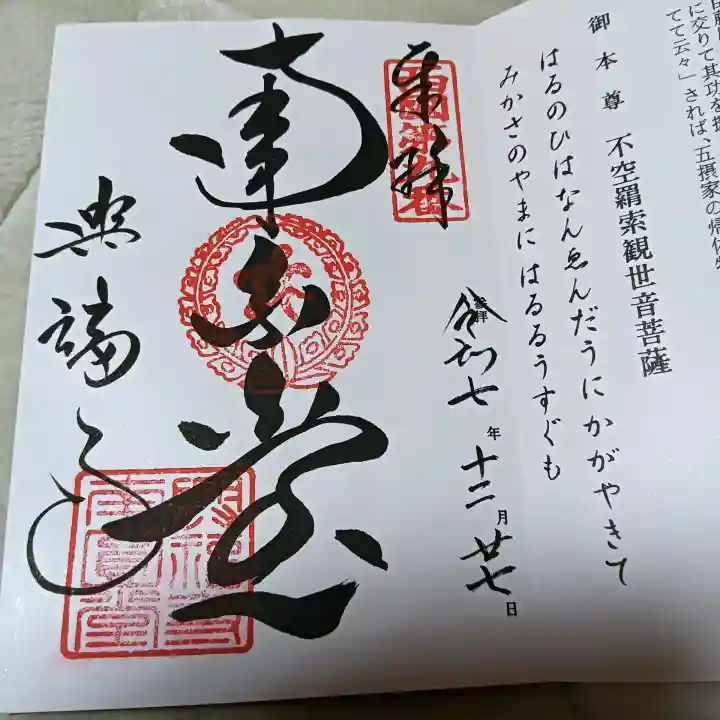 に交りて其功を
てて云々」されば、五摂家の帰依
御本尊 不空羂索観世音菩薩
はるのひはなんゑんだうにかがやきて
みかさのやまに はるるうすぐも
奉拝
西国第九番
参拝
令和七年十二月廿七日
南圓堂
興福寺